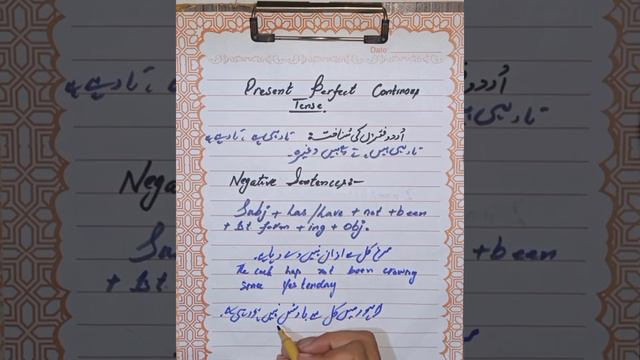 Date
Present Perfect Continous
Tense.
اُردو کی شناخت : تا رہی ہے ، تا رہے
تا رہی ہیں، وغیرہ۔
Negative Sentences:-
Subj + has/have + not + been
+ 1st form + ing + Obj.
مرغ کل سے اذان نہیں دے رہا ہے۔
The cock has not been crowing
since Yesterday
لاہور میں کل سے بارش نہیں ہو رہی ہے۔